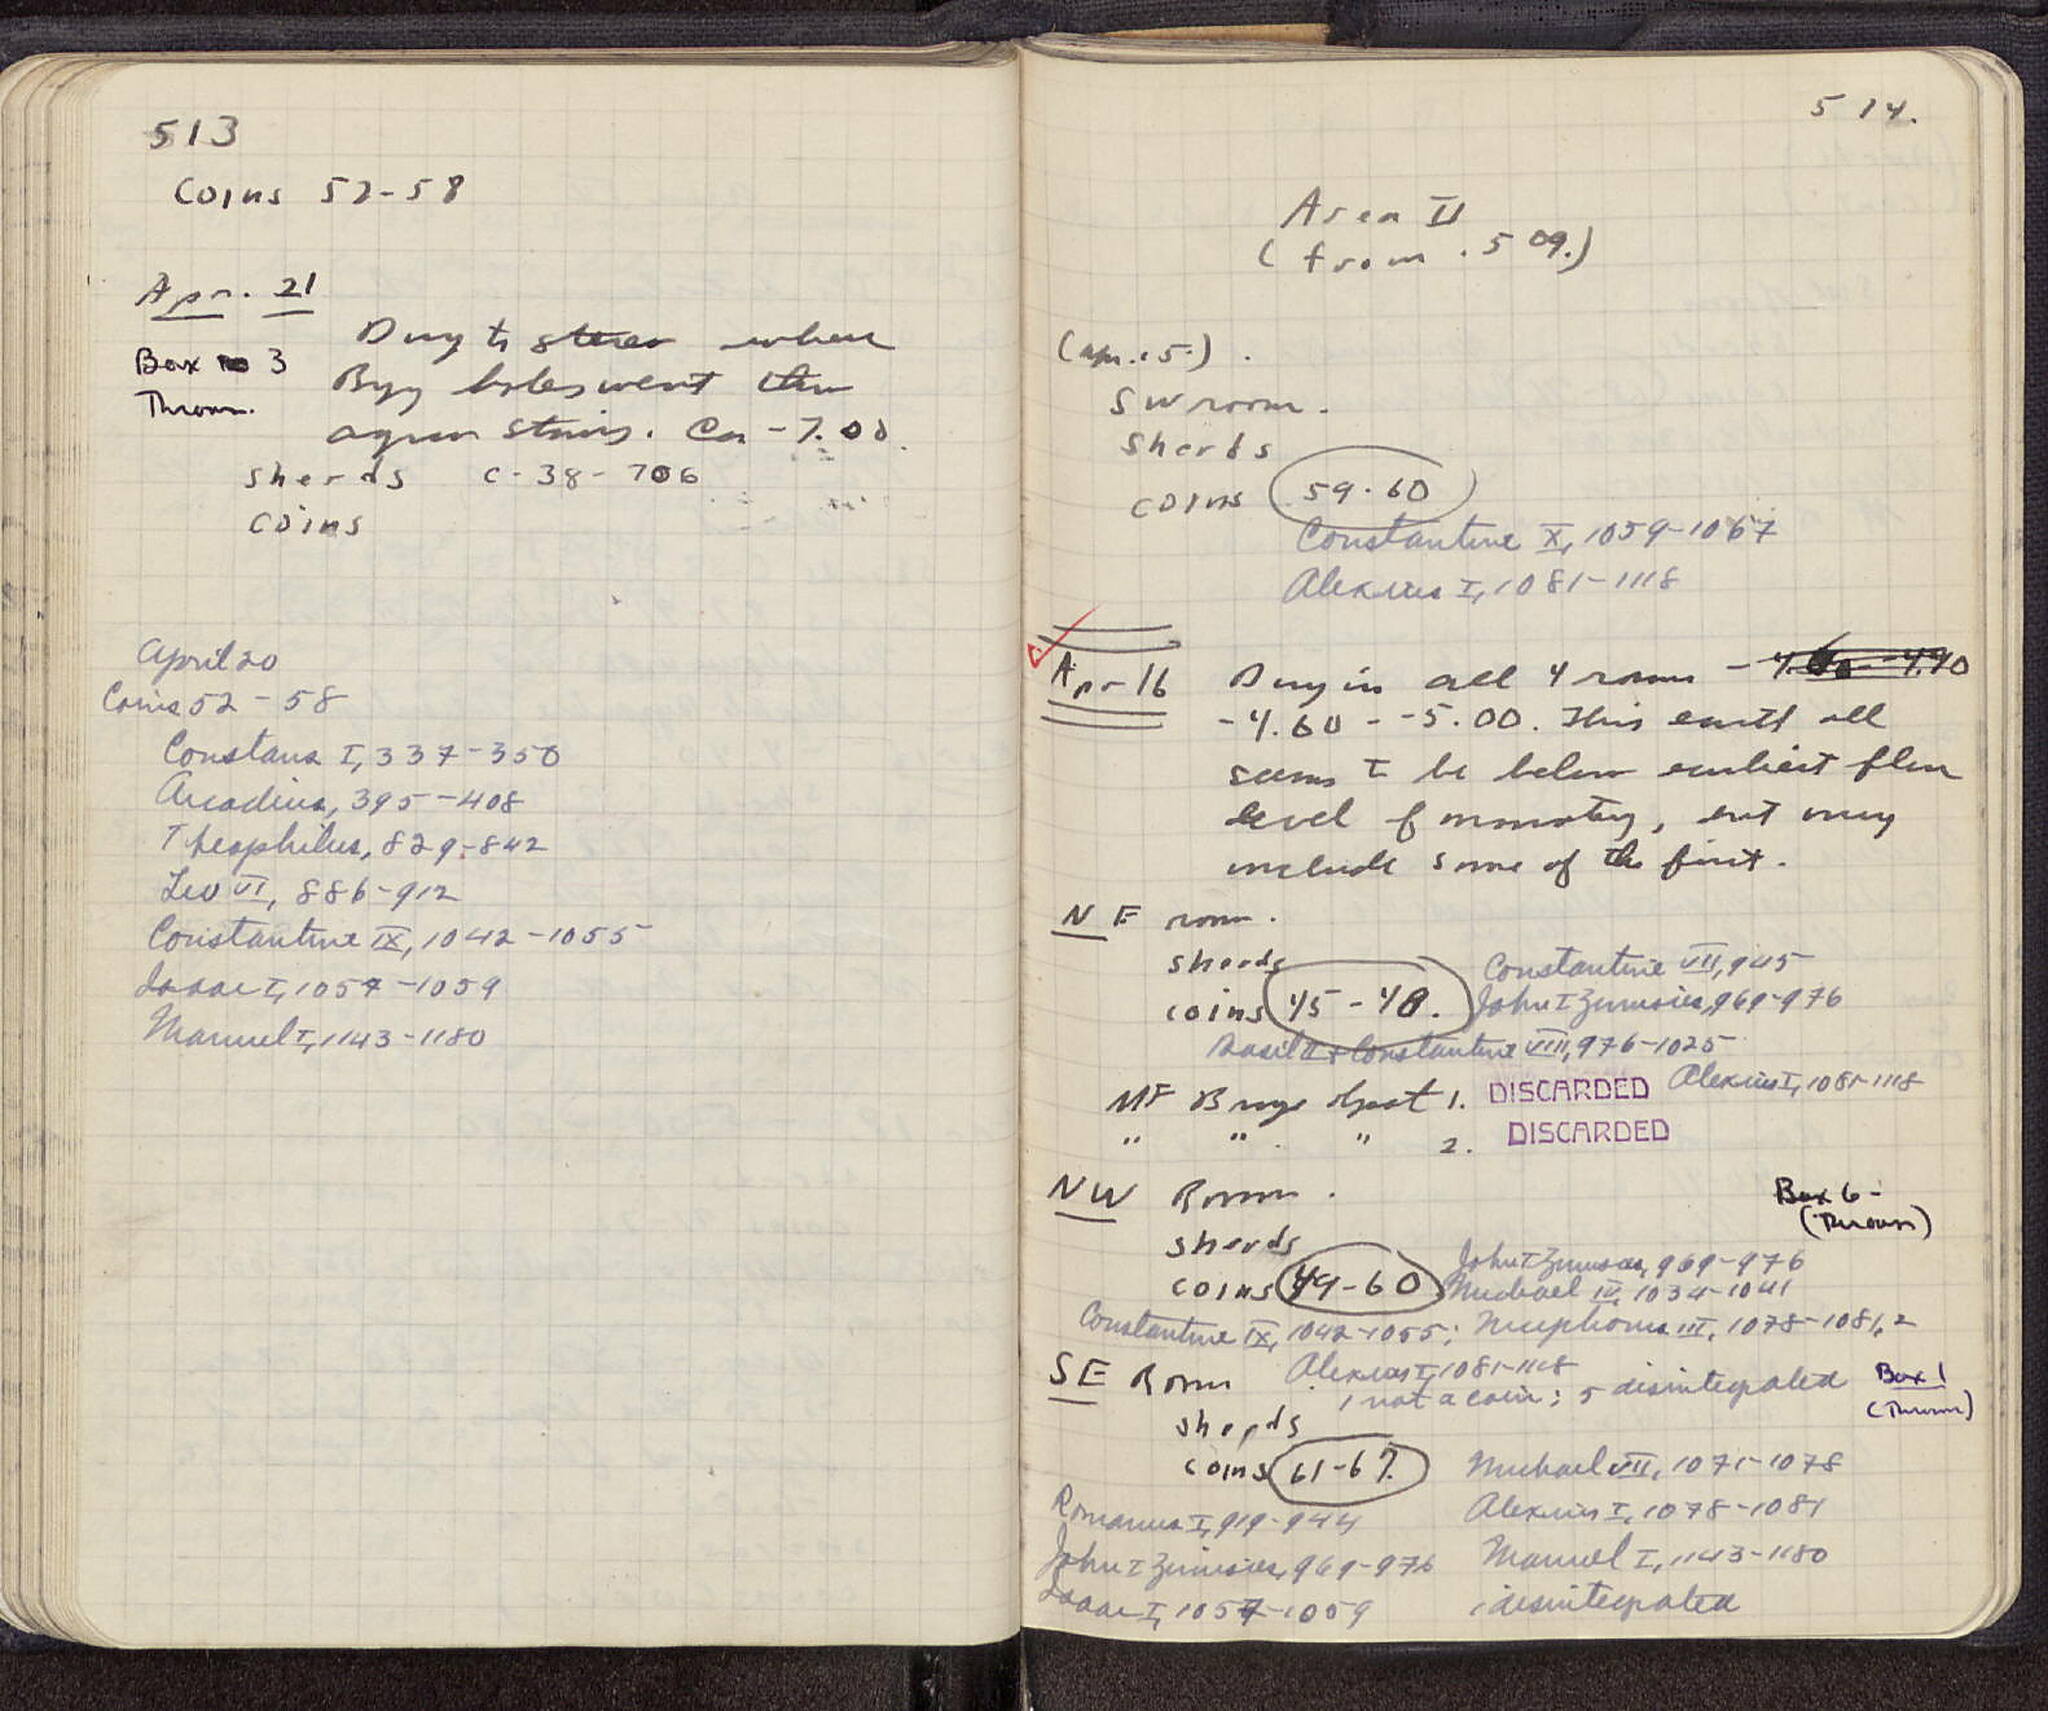 513
Coins 52-58
Apr. 21
Dug to stereo where
Box 3
Byz holes went thru
Thrown.
agora stairs. Ca -7.00.
sherds c-38-706
coins
April 20
Coins 52-58
Constans I, 337-350
Arcadius, 395-408
Theophilus, 829-842
Leo VI, 886-912
Constantine IX, 1042-1055
Isaac I, 1057-1059
Manuel I, 1143-1180
514.
Area II
(from 509.)
(Apr. 15.)
SW room.
sherds
coins 59-60
Constantine X, 1059-1067
Alexius I, 1081-1118
Apr 16
Dug in all 4 rooms -4.60 - -4.90
-4.60 - -5.00. This earth all
seems to be below earliest floor
level of monastery, but may
include some of the first.
NE room.
sherds
Constantine VII, 945
coins 45-48.
John I Zimisces, 969-976
Basil II + Constantine VIII, 976-1025
Alexius I, 1081-1118
MF Bronze object 1. DISCARDED
" " " 2. DISCARDED
NW Room.
Box 6-
(Thrown)
sherds
John I Zimisces, 969-976
coins 49-60
Michael IV, 1034-1041
Constantine IX, 1042-1055; Nicephorus III, 1078-1081, 2
Alexius I, 1081-1118
SE Room
1 not a coin; 5 disintegrated
Box 1
(Thrown)
sherds
coins 61-67.
Michael VII, 1071-1078
Romanus I, 919-944
Alexius I, 1078-1081
John I Zimisces, 969-976
Manuel I, 1143-1180
Isaac I, 1057-1059
1 disintegrated